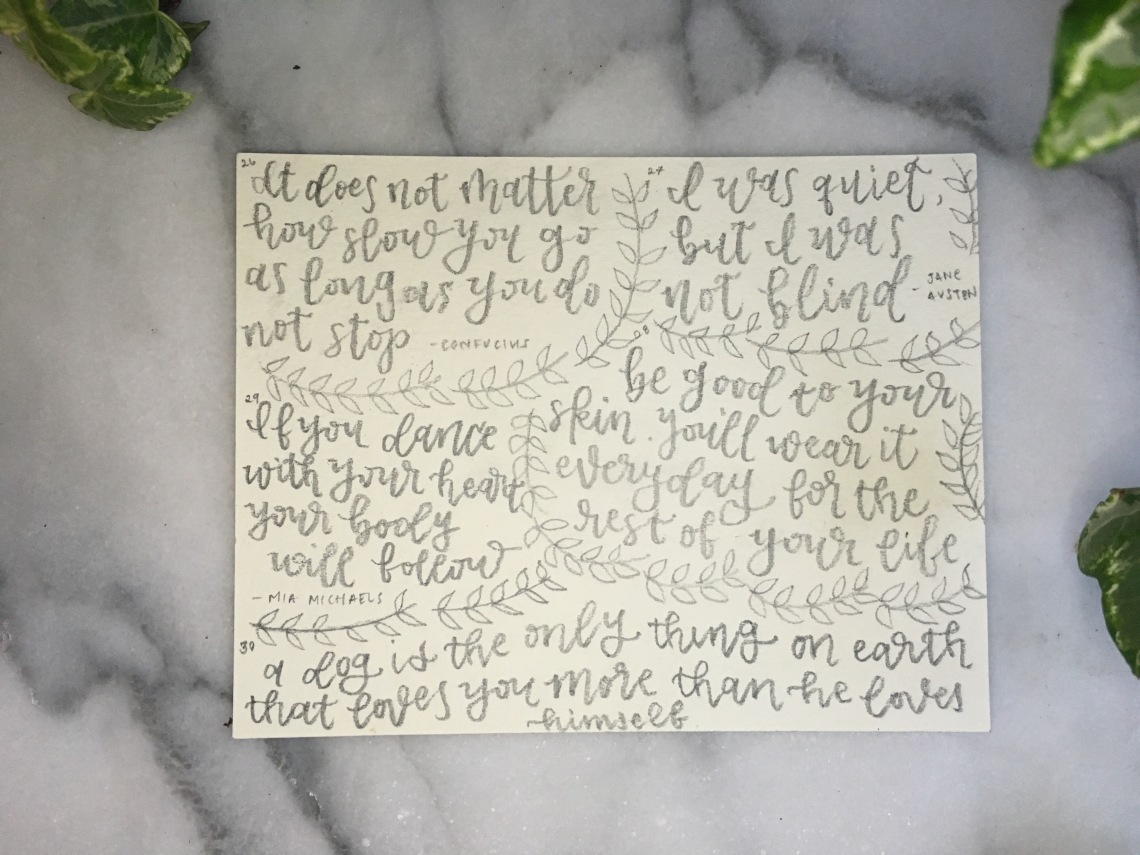 26 It does not matter
how slow you go
as long as you do
not stop - CONFUCIUS
27 I was quiet,
but I was
not blind - JANE
AUSTEN
28 be good to your
skin. you'll wear it
everyday for the
rest of your life
29 If you dance
with your heart,
your body
will follow
- MIA MICHAELS
30 a dog is the only thing on earth
that loves you more than he loves
himself